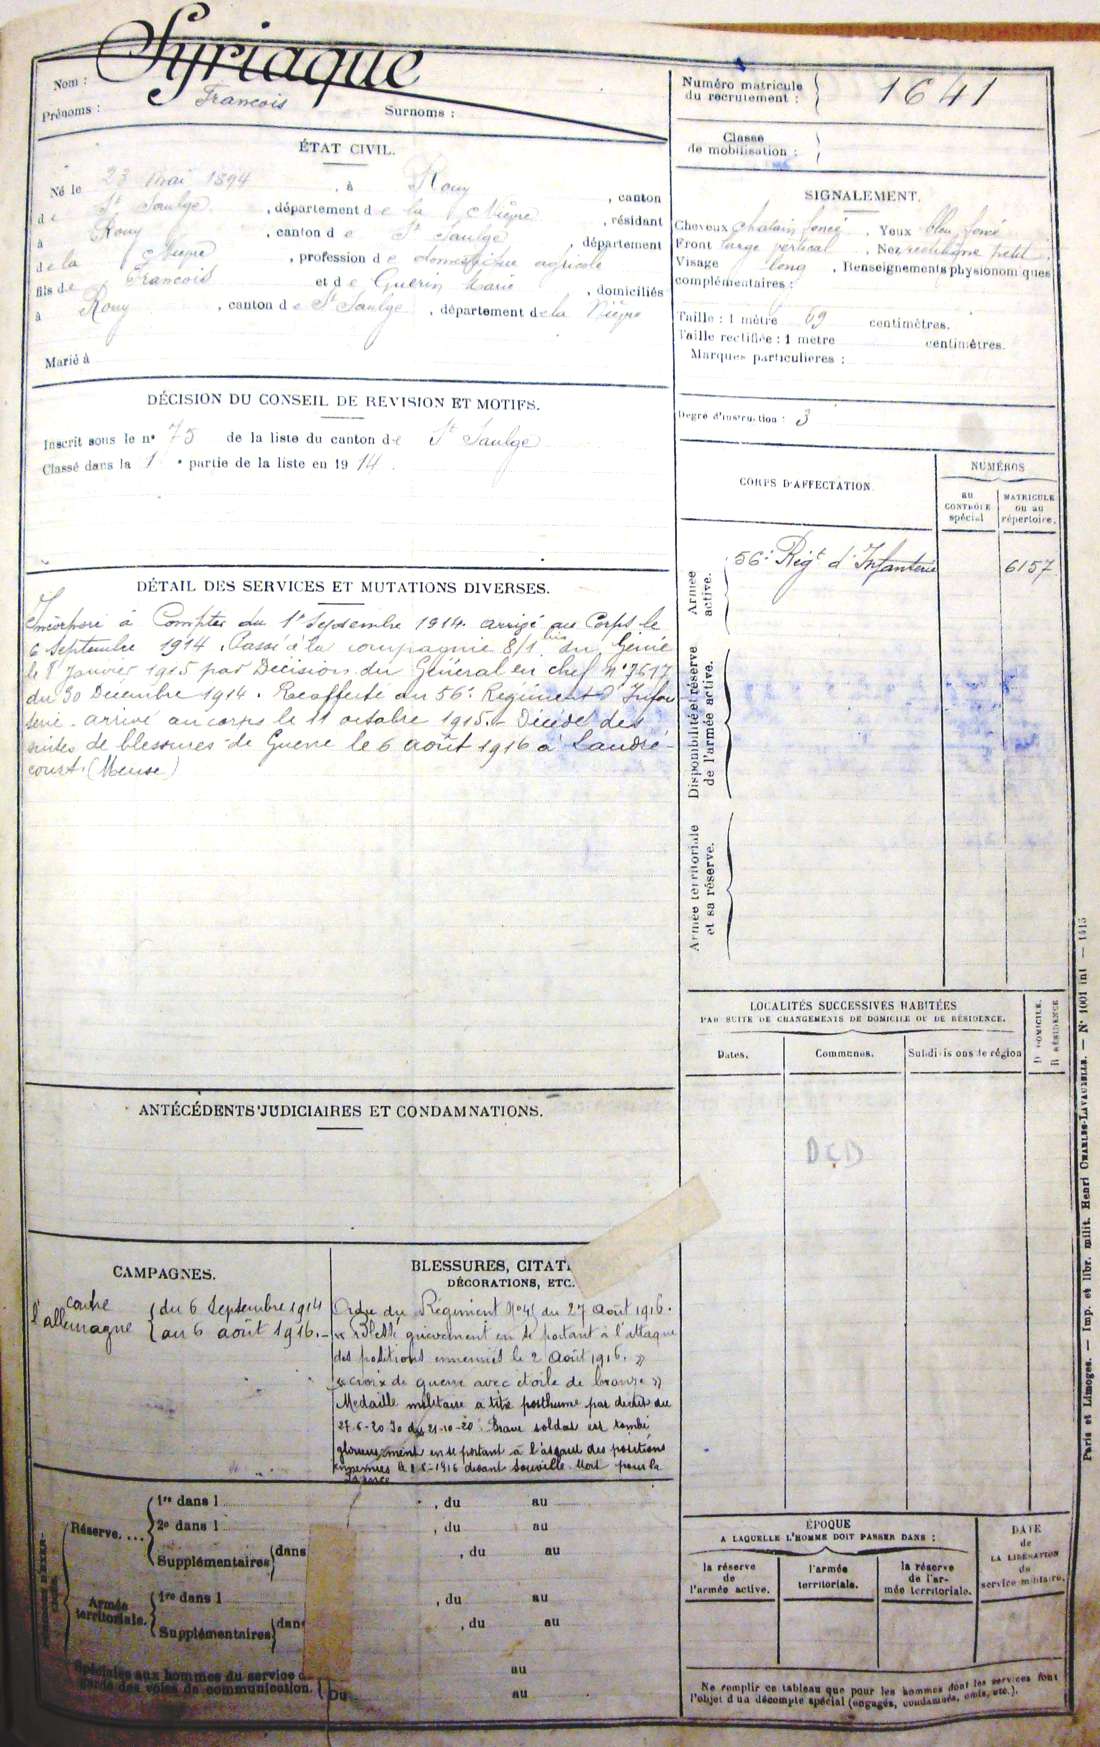 Nom : Syriaque
Prénoms : François Surnoms :
Numéro matricule du recrutement : 1641
Classe de mobilisation :
ÉTAT CIVIL.
Né le 23 Mai 1894, à Rouy, canton
de St Saulge, département de la Nièvre, résidant
à Rouy, canton de St Saulge, département
de la Nièvre, profession de domestique agricole
fils de François et de Guerin Marie, domiciliés
à Rouy, canton de St Saulge, département de la Nièvre
Marié à
SIGNALEMENT.
Cheveux chatain foncé. Yeux bleu foncé
Front large vertical. Nez rectiligne petit
Visage long. Renseignements physionomiques
complémentaires :
Taille : 1 mètre 69 centimètres.
Taille rectifiée : 1 mètre centimètres.
Marques particulières :
Degré d'instruction : 3
DÉCISION DU CONSEIL DE REVISION ET MOTIFS.
Inscrit sous le n° 75 de la liste du canton de St Saulge
Classé dans la 1e partie de la liste en 1914.
DÉTAIL DES SERVICES ET MUTATIONS DIVERSES.
Incorporé à Compter du 1er Septembre 1914. arrivé au Corps le
6 Septembre 1914. Passé à la compagnie 8/1 bis du Génie
le 8 Janvier 1915 par Décision du Général en chef n° 7617
du 30 Décembre 1914. Réaffecté au 56e Régiment d'Infan
terie. arrivé au corps le 11 octobre 1915. Décédé des
suites de blessures de Guerre le 6 août 1916 à Landré-
court. (Meuse)
CORPS D'AFFECTATION.
NUMÉROS
au CONTRÔLE spécial
MATRICULE ou au répertoire.
Armée active.
56e Régt d'Infanterie 6157
Disponibilité et réserve de l'armée active.
Armée territoriale et sa réserve.
LOCALITÉS SUCCESSIVES HABITÉES
PAR SUITE DE CHANGEMENTS DE DOMICILE OU DE RÉSIDENCE.
Dates. Communes. Subdivisions de région
D DOMICILE. R RÉSIDENCE
DCD
ANTÉCÉDENTS JUDICIAIRES ET CONDAMNATIONS.
CAMPAGNES.
contre l'allemagne
du 6 Septembre 1914
au 6 août 1916.
BLESSURES, CITATI
DÉCORATIONS, ETC.
Ordre du Régiment du 27 Août 1916.
« Blessé grièvement en se portant à l'attaque
des positions ennemies le 2 Août 1916. »
« croix de guerre avec étoile de bronze »
Médaille militaire à titre posthume par décret du
27-6-20 Jo du 21-10-20 Brave soldat est tombé
glorieusement en se portant à l'assaut des positions
ennemies le 2-8-1916 devant Souville. Mort pour la
France
Réserve....
1re dans l , du au
2e dans l , du au
Supplémentaires dans , du au
Armée territoriale.
1re dans l , du au
Supplémentaires dans , du au
Spéciales aux hommes du service de garde des voies de communication.
au
Du au
ÉPOQUE
A LAQUELLE L'HOMME DOIT PASSER DANS :
la réserve de l'armée active.
l'armée territoriale.
la réserve de l'armée territoriale.
DATE de LA LIBÉRATION du service militaire.
Ne remplir ce tableau que pour les hommes dont les services font
l'objet d'un décompte spécial (engagés, condamnés, omis, etc.).
Paris et Limoges. — Imp. et libr. milit. Henri CHARLES-LAVAUZELLE. — N° 1001 int — 1413